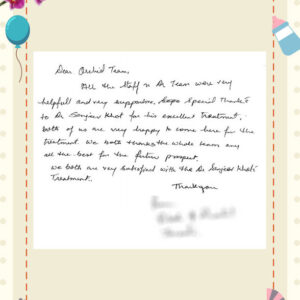 Dear Orchid Team,
All the Staff n Dr Team were very
helpfull and very supportive. Special Thanks
to Dr Sanjeev Khot for his excellent treatment.
both of us are very happy to come here for the
treatment. We both thanks the whole team any
all the best for the future prospect.
We both are very satisfied with the Dr Sanjeev Khot's
Treatment.
Thankyou